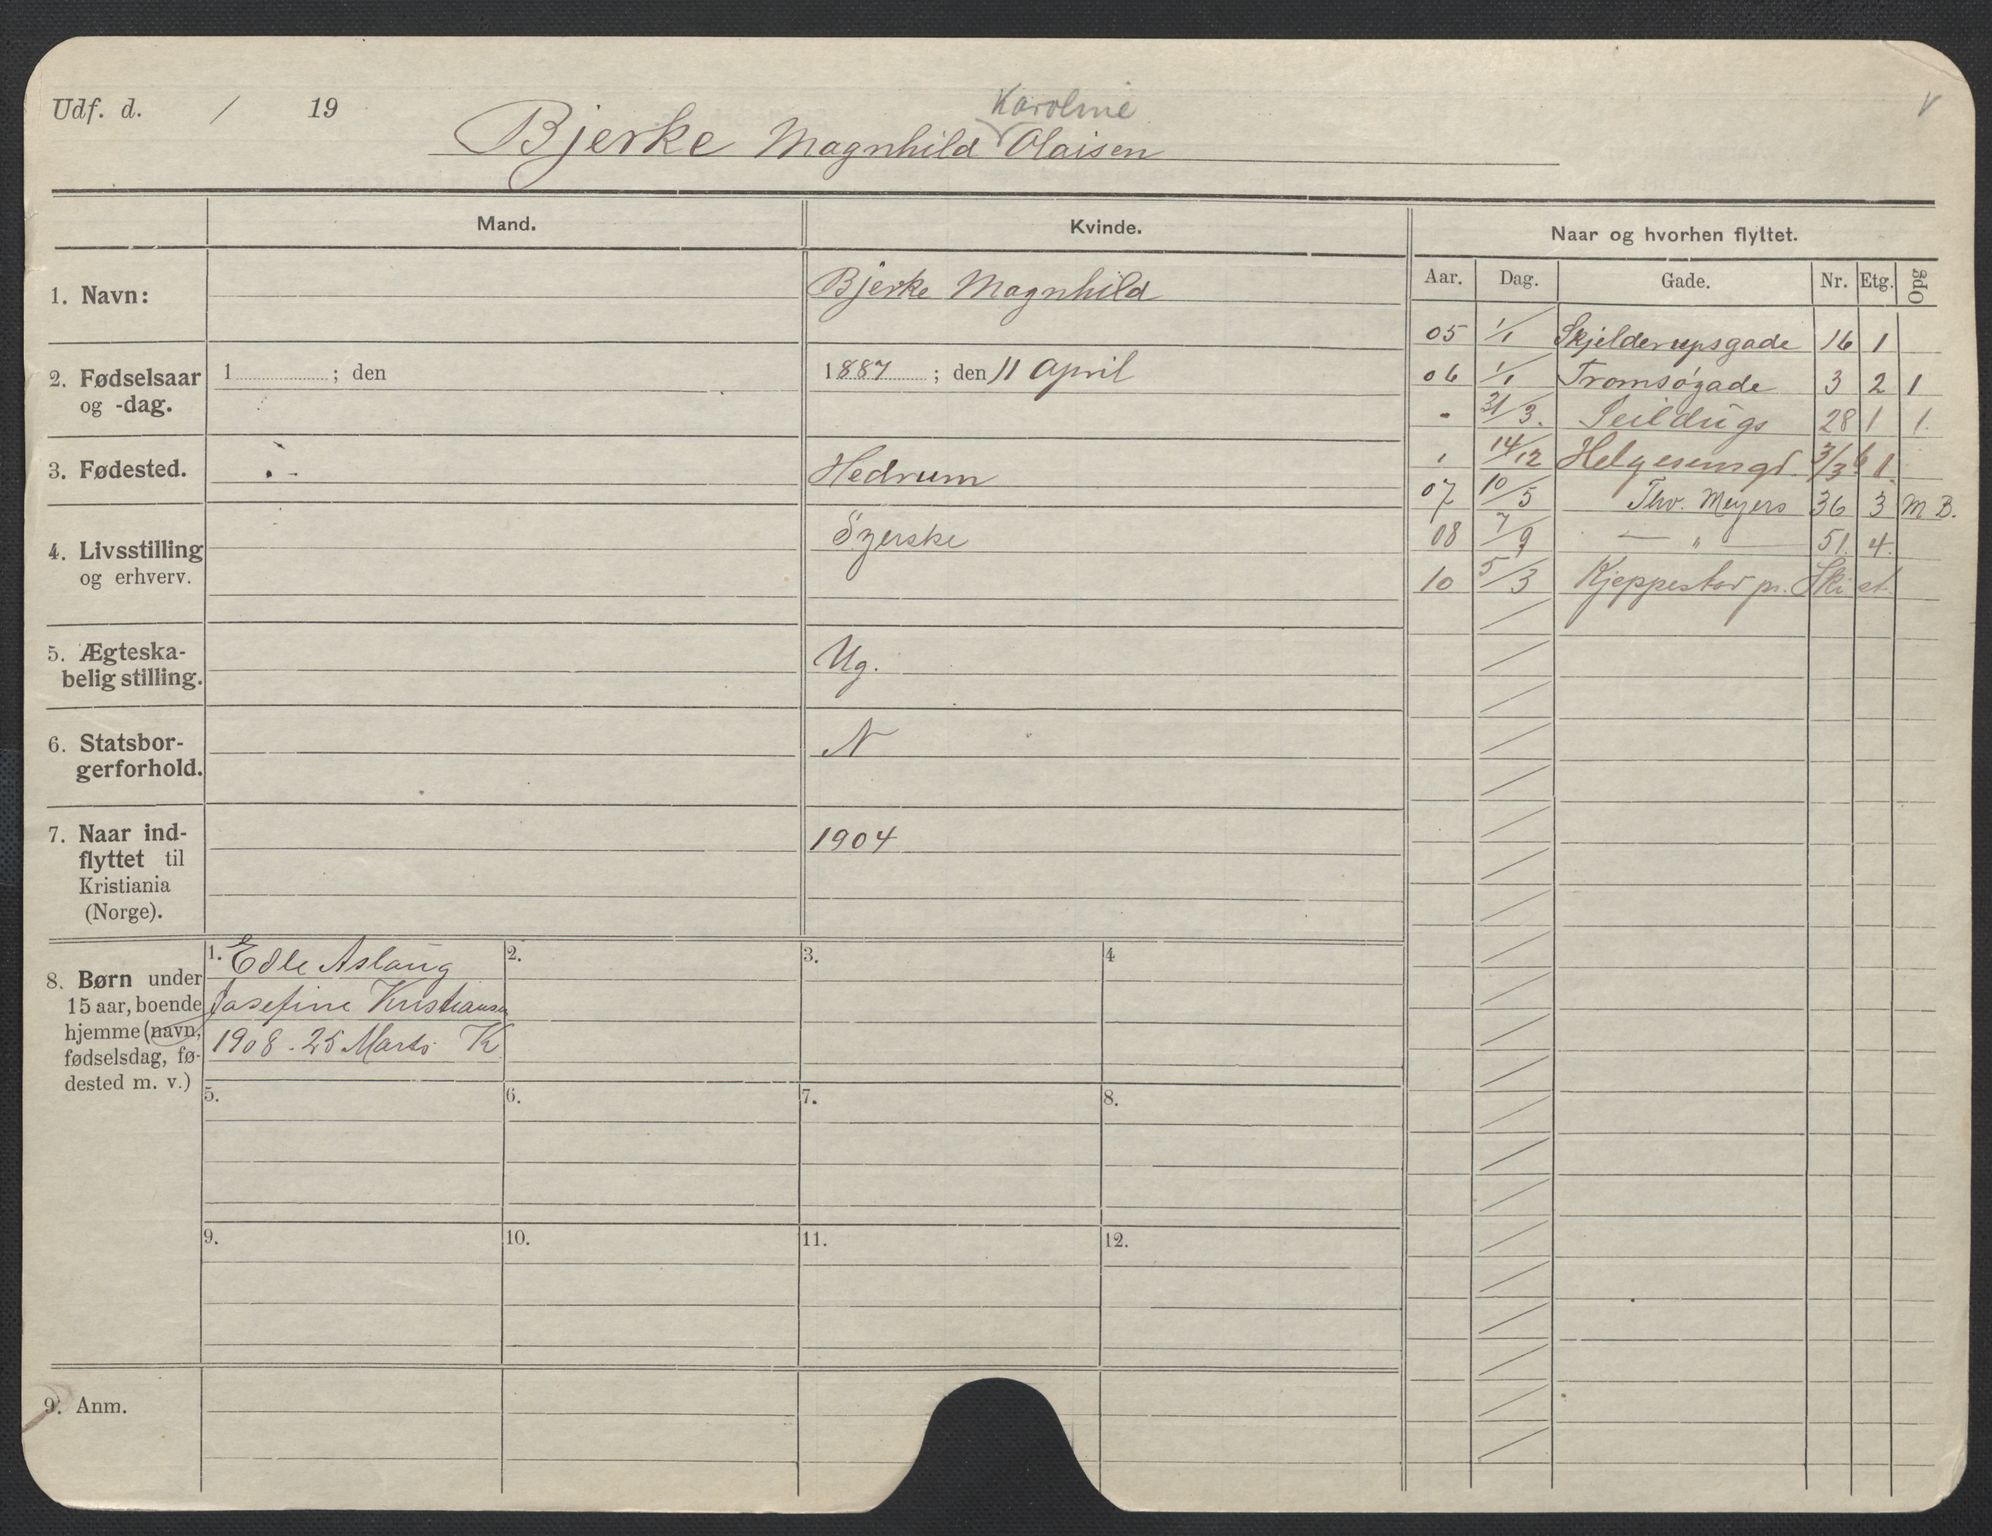 Udf. d. / 19
Karoline
Bjerke Magnhild Olaisen
V
Mand.
Kvinde.
Naar og hvorhen flyttet.
Aar. Dag. Gade. Nr. Etg. Opg
1. Navn:
Bjerke Magnhild
2. Fødselsaar
og -dag.
1 ; den
1887 ; den 11 April
3. Fødested.
Hedrum
4. Livsstilling
og erhverv.
Syerske
5. Ægteska-
belig stilling.
Ug.
6. Statsbor-
gerforhold.
N
7. Naar ind-
flyttet til
Kristiania
(Norge).
1904
05 1/1 Skjelderupsgade 16 1
06 1/1 Tromsøgade 3 2 1
" 31/3. Seildugs 28 1 1.
" 14/12 Helgesensgd. 1.
07 10/5 Thv. Meyers 36 3 M B.
08 7/9 — " — 51. 4.
10 5/3 Kjeppestad pr. Ski st.
8. Børn under
15 aar, boende
hjemme (navn,
fødselsdag, fø-
dested m. v.)
1. Edle Aslaug
Josefine Kristiansen
1908 - 25 Marts K
2.
3.
4
5.
6.
7.
8.
9.
10.
11.
12.
9. Anm.